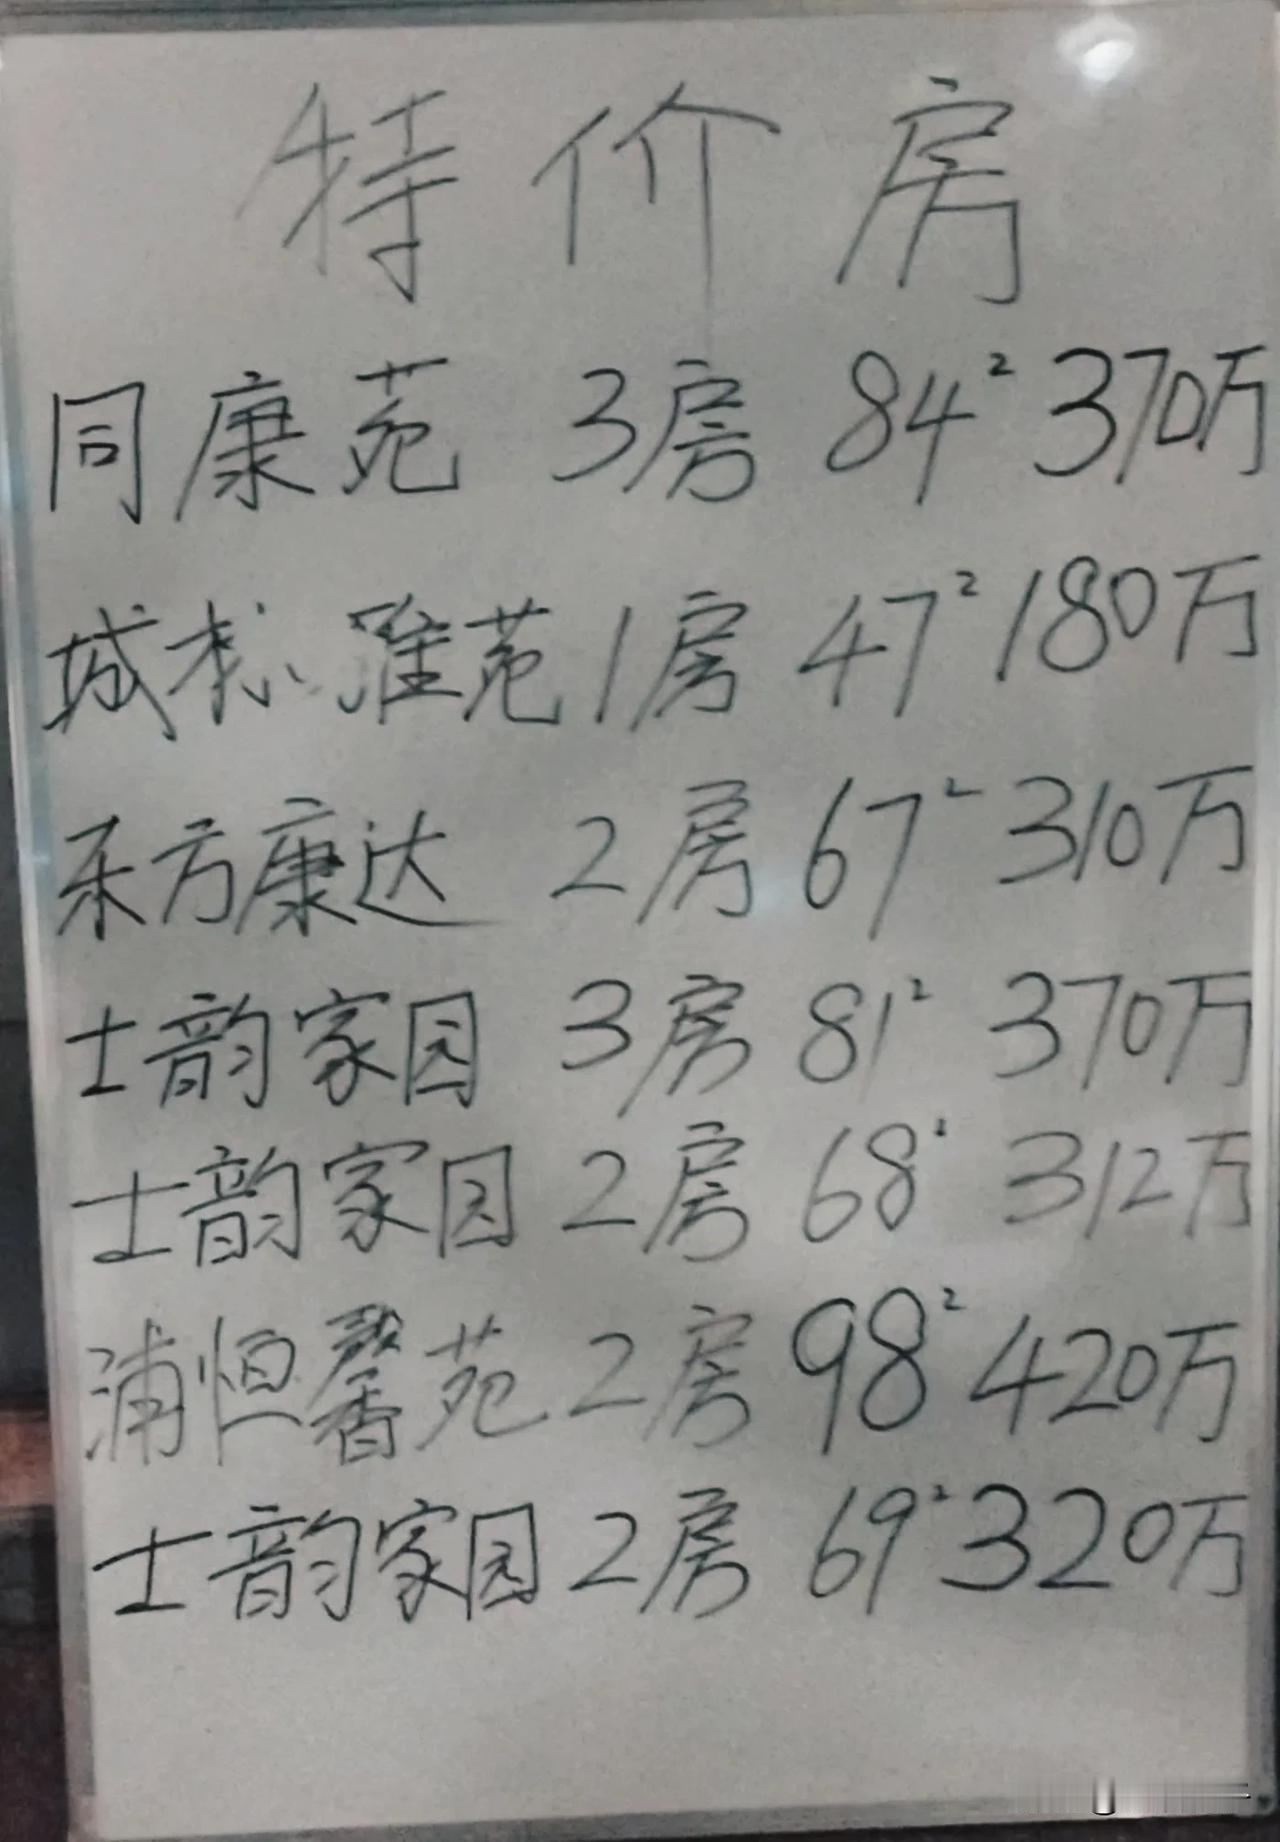 特价房
同康苑 3房 84² 370万
城市雅苑 1房 47² 180万
东方康达 2房 67² 310万
士韵家园 3房 81² 370万
士韵家园 2房 68² 312万
浦恒馨苑 2房 98² 420万
士韵家园 2房 69² 320万